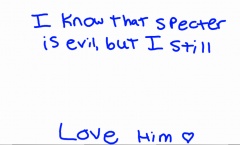 I know that specter
is evil, but I still
Love Him ♡